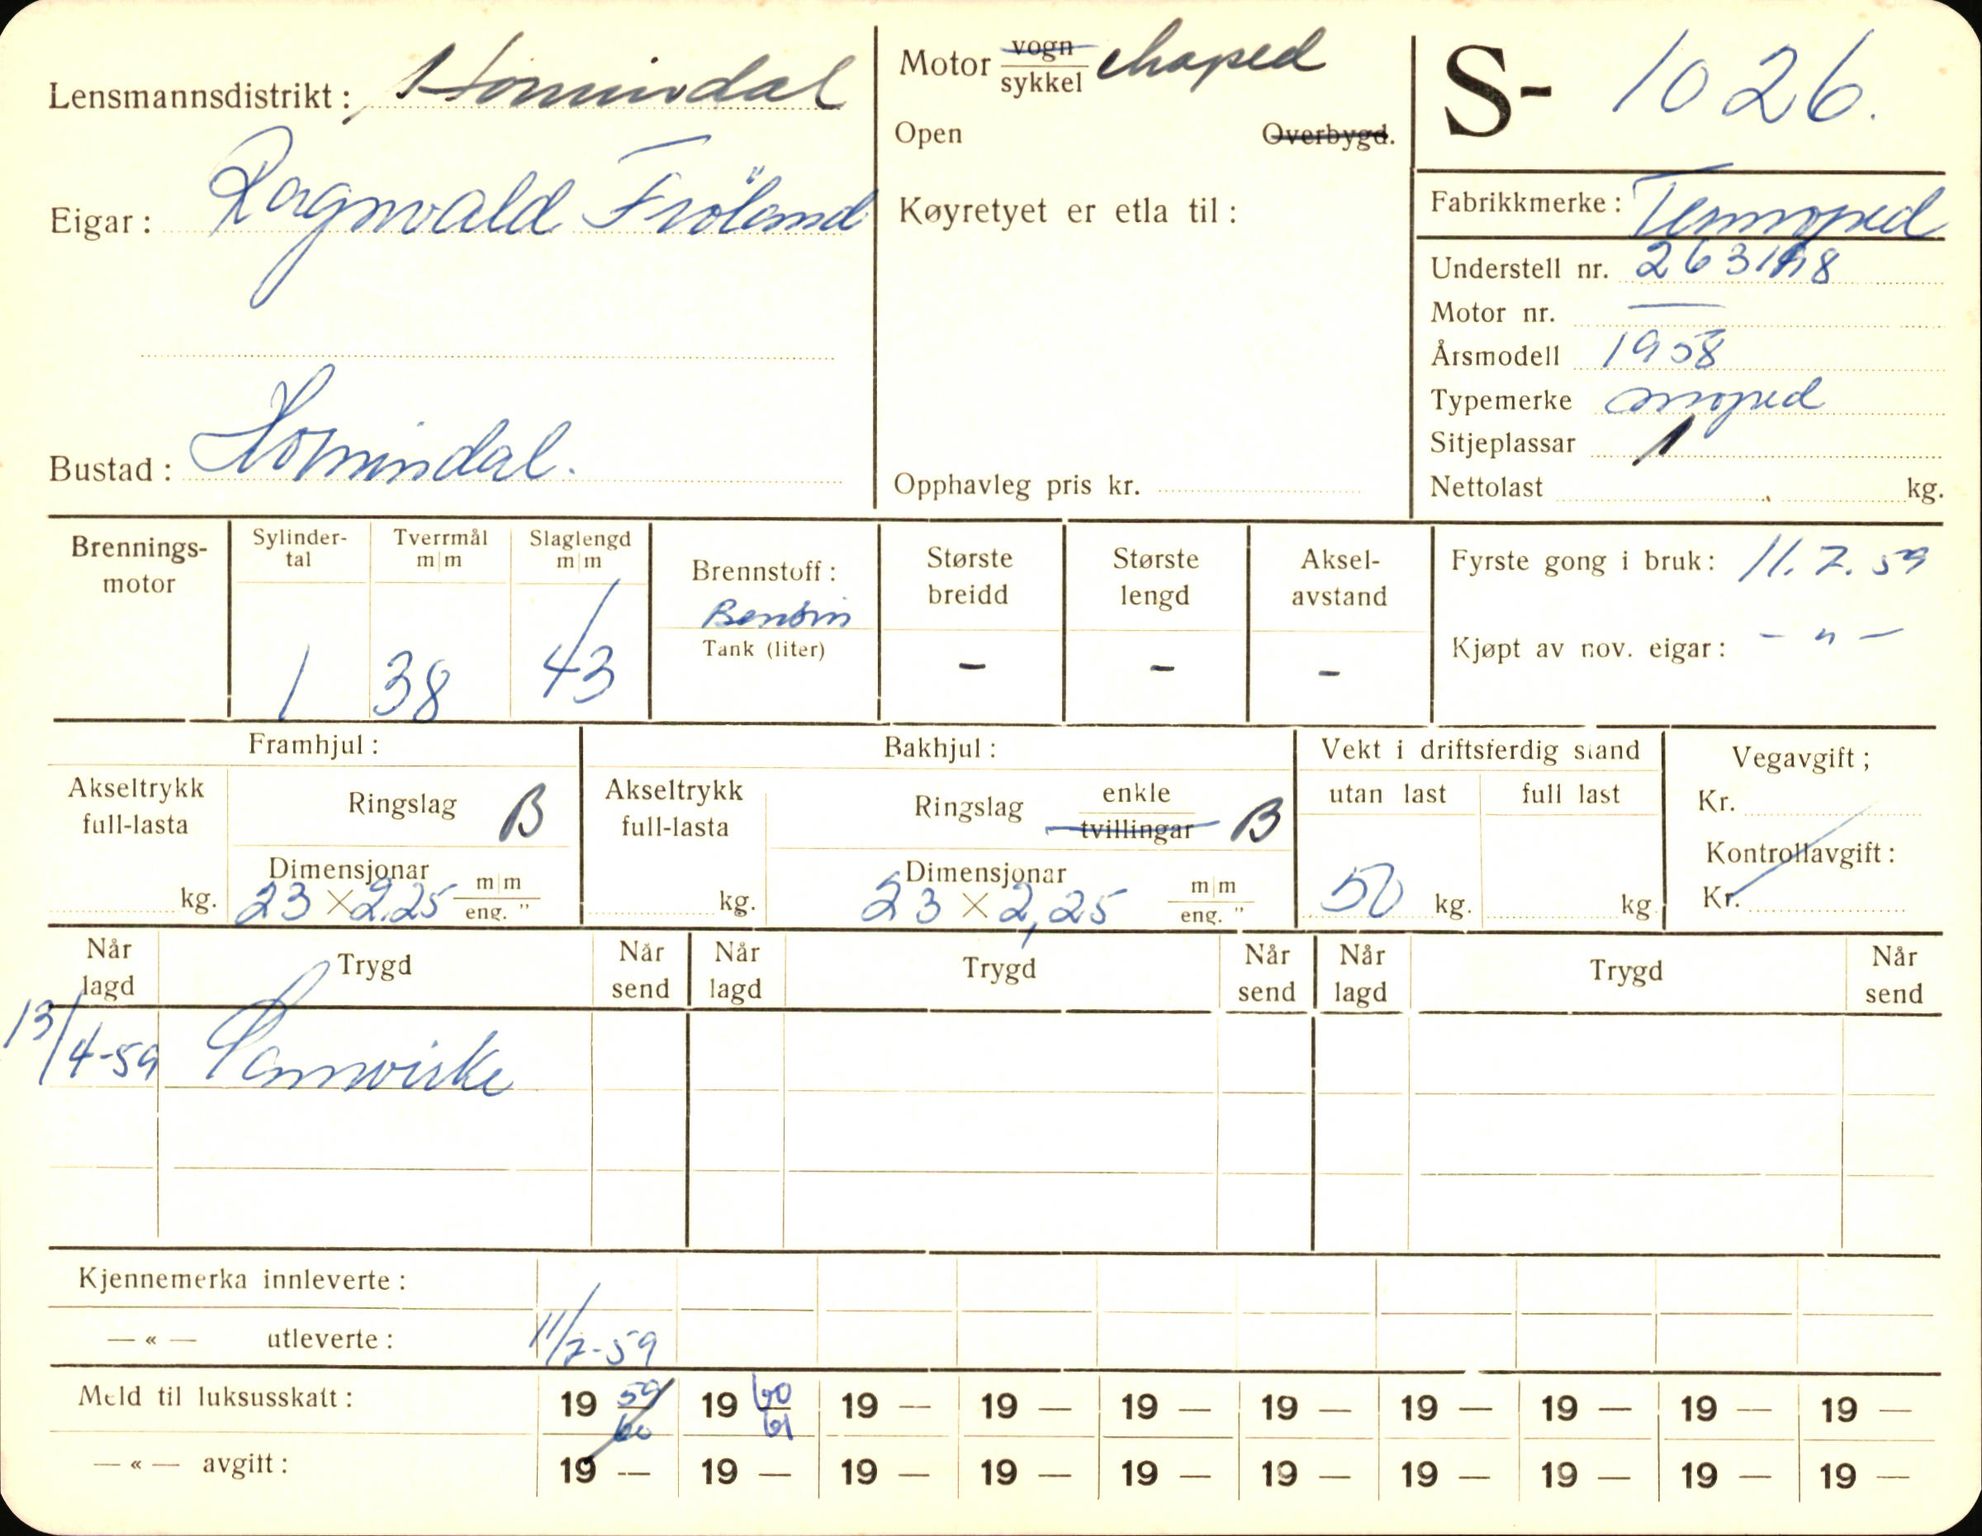 Lensmannsdistrikt: Hornindal
Eigar: Ragnvald Frøland
Bustad: Hornindal.
Motor vogn sykkel
Open Overbygd.
Køyretyet er etla til:
Opphavleg pris kr.
S- 1026.
Fabrikkmerke: Tempoped
Understell nr.
Motor nr. —
Årsmodell 1958
Typemerke moped
Sitjeplassar 1
Nettolast kg.
Brennings-motor
Sylinder-tal 1
Tverrmål m/m 38
Slaglengd m/m 43
Brennstoff: Bensin
Tank (liter)
Største breidd -
Største lengd -
Aksel-avstand -
Fyrste gong i bruk: 11.7.59
Kjøpt av nov. eigar: - " -
Framhjul:
Akseltrykk full-lasta kg.
Ringslag B
Dimensjonar 23 × 2,25 m/m eng. "
Bakhjul:
Akseltrykk full-lasta kg.
Ringslag enkle tvillingar B
Dimensjonar 23 × 2,25 m/m eng. "
Vekt i driftsferdig stand
utan last 50 kg.
full last kg
Vegavgift;
Kr.
Kontrollavgift:
Kr.
Når lagd Trygd Når send Når lagd Trygd Når send Når lagd Trygd Når send
13/4-59 Samvirke
Kjennemerka innleverte:
— « — utleverte: 11/7-59
Meld til luksusskatt: 19 59/60 19 60/61 19 — 19 — 19 — 19 — 19 — 19 — 19 — 19 —
— « — avgitt: 19 — 19 — 19 — 19 — 19 — 19 — 19 — 19 — 19 — 19 —